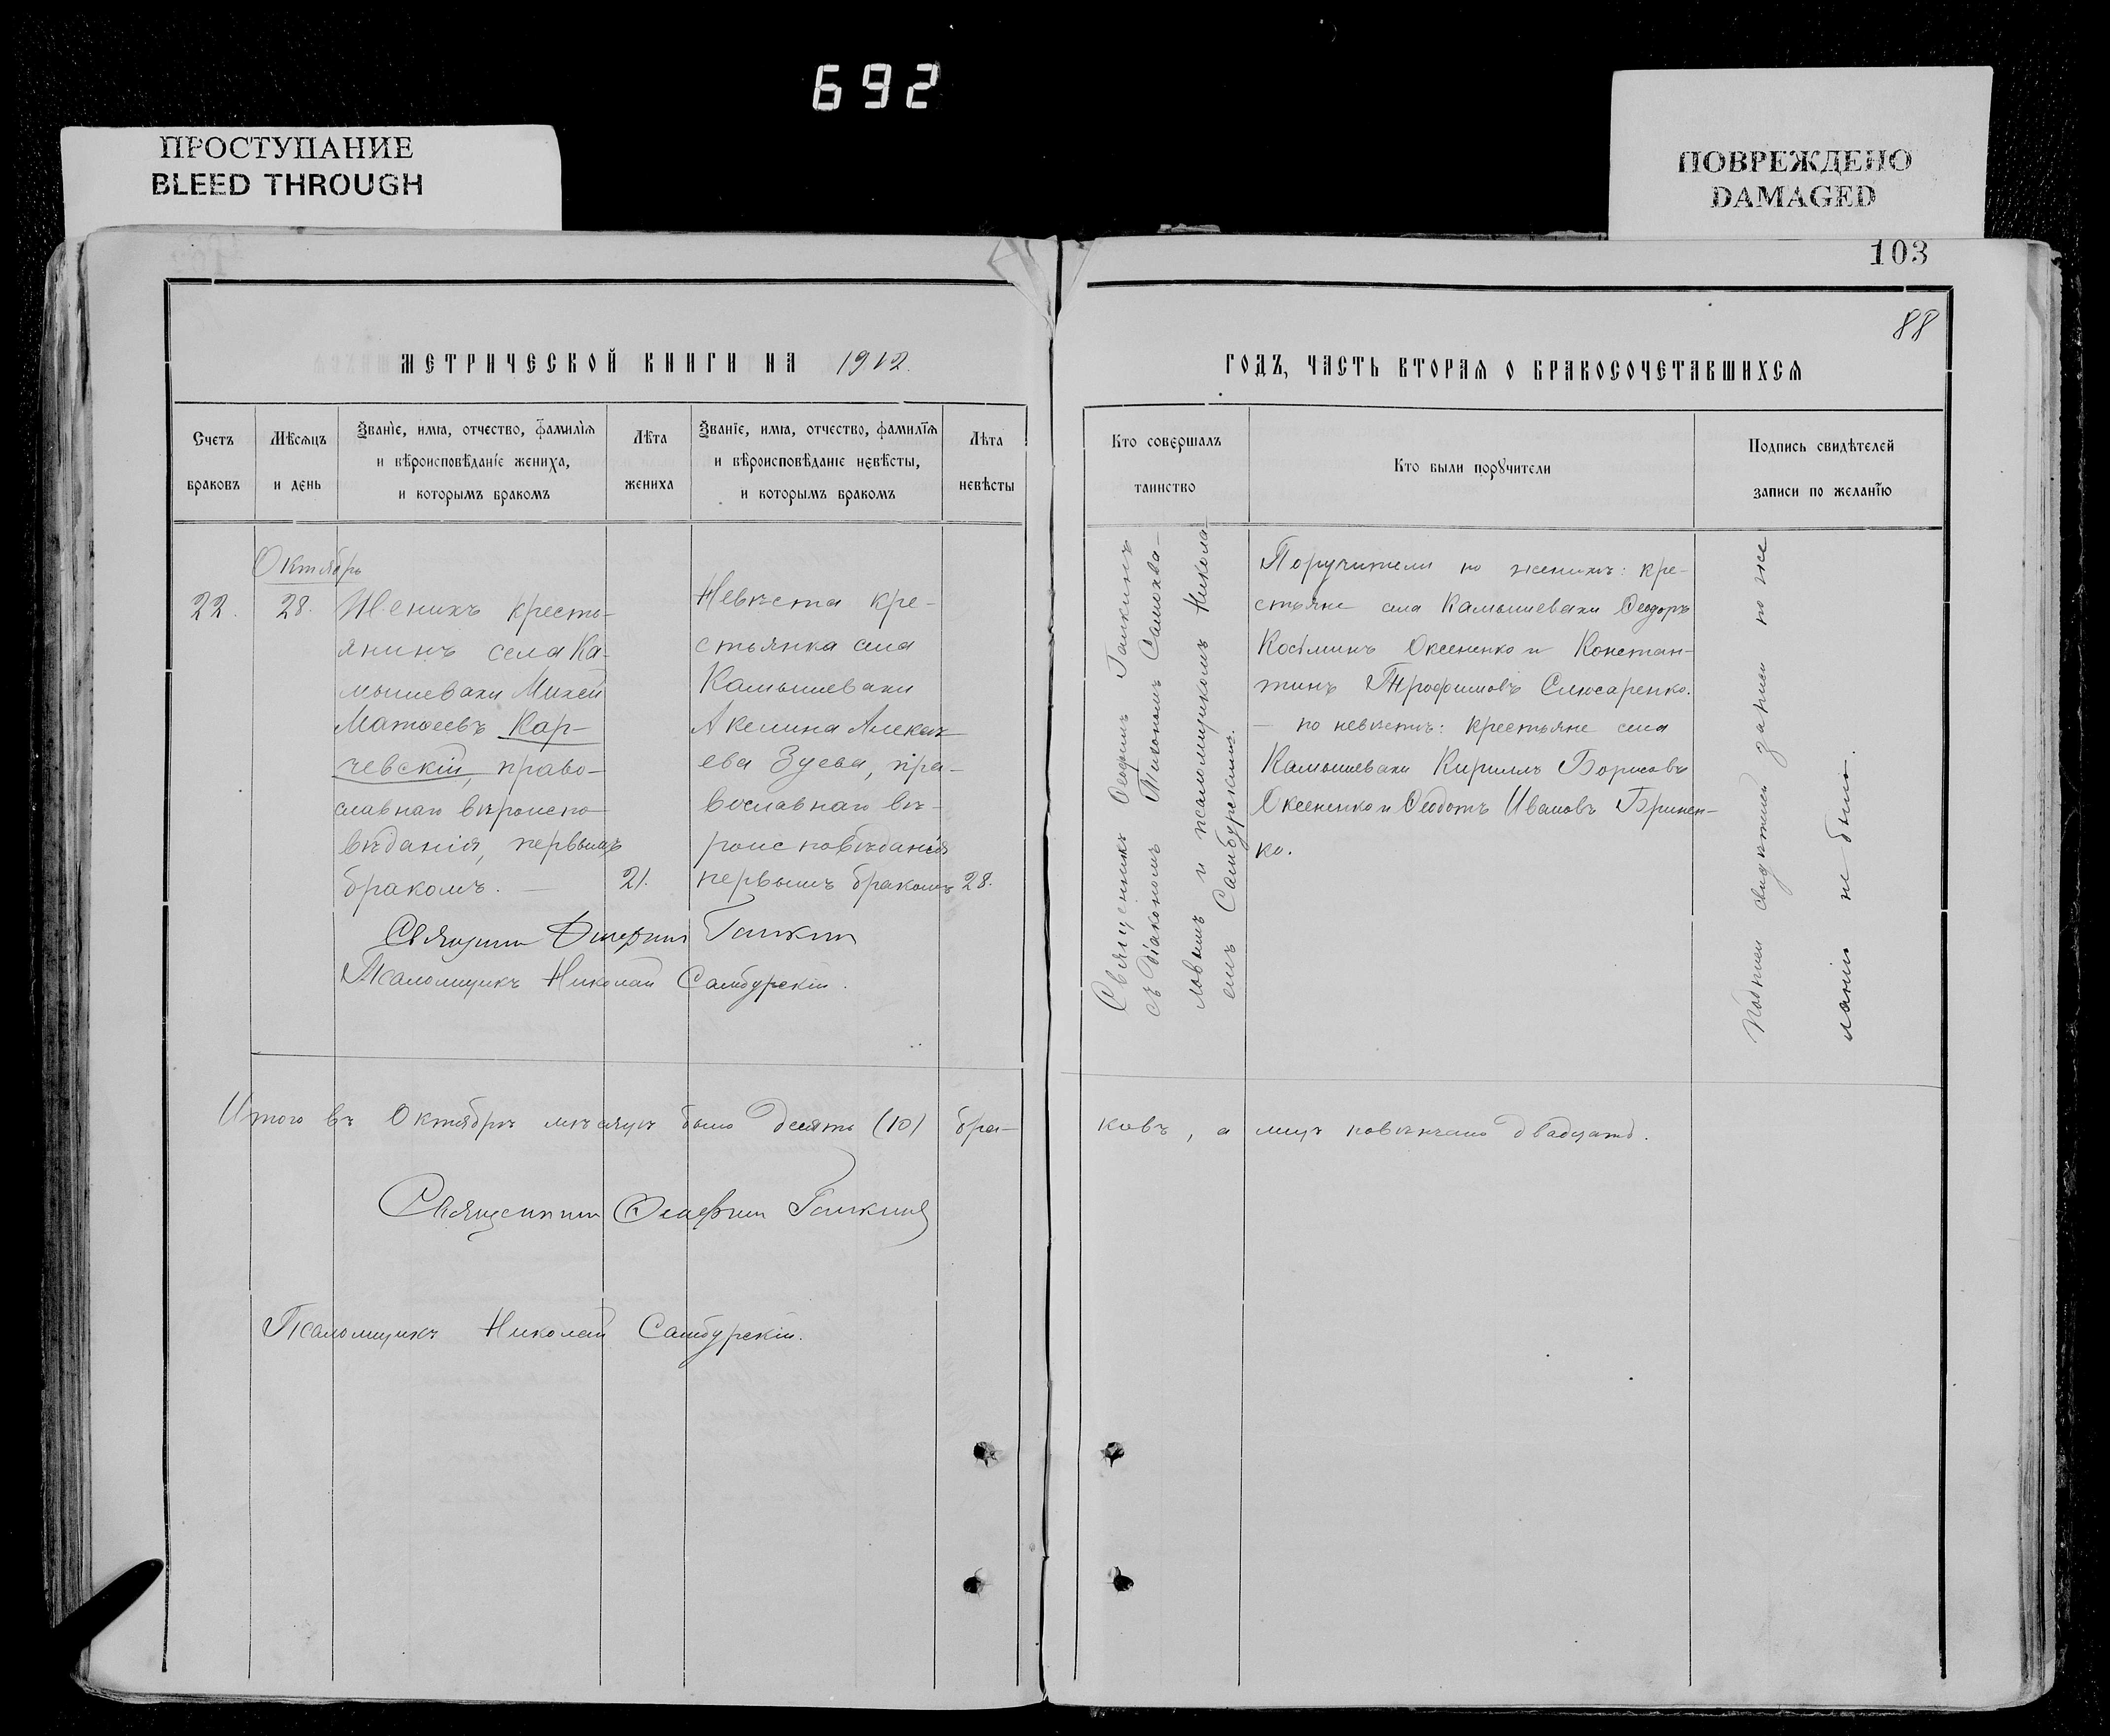 692
ПРОСТУПАНИЕ
BLEED THROUGH
ПОВРЕЖДЕНО
DAMAGED
103
88
МЕТРИЧЕСКОЙ КНИГИ НА 1912.
ГОДЪ, ЧАСТЬ ВТОРАЯ О БРАКОСОЧЕТАВШИХСЯ
Счетъ
браковъ
Мѣсяцъ
и день
Званіе, имя, отчество, фамилія
и вѣроисповѣданіе жениха,
и которымъ бракомъ
Лѣта
жениха
Званіе, имя, отчество, фамилія
и вѣроисповѣданіе невѣсты,
и которымъ бракомъ
Лѣта
невѣсты
Кто совершалъ
таинство
Кто были поручители
Подпись свидѣтелей
записи по желанію
Октябрь
22.
28.
Женихъ кресть-
янинъ села Ка-
мышевахи Михей
Матѳеевъ Кар-
чевскій, право-
славнаго вѣроиспо-
вѣданія, первымъ
бракомъ. —
21.
Невѣста кре-
стьянка села
Камышевахи
Акелина Алексѣ-
ева Зуева, пра-
вославнаго вѣ-
роисповѣданія
первымъ бракомъ
28.
Священникъ Ѳеофилъ Галкинъ
съ діакономъ Тихономъ Самохва-
ловымъ и псаломщикомъ Никола-
емъ Самбурскимъ.
Поручители по женихѣ: кре-
стьяне села Камышевахи Ѳеодоръ
Косьминъ Оксененко и Констан-
тинъ Трофимовъ Слюсаренко.
— по невѣстѣ: крестьяне села
Камышевахи Кириллъ Борисовъ
Оксененко и Ѳеодотъ Ивановъ Бринен-
ко.
Подписи свидѣтелей записи по же
ланію не было.
Священникъ Галкинъ
Псаломщикъ Николай Самбурскій.
Итого въ Октябрѣ мѣсяцѣ было десять (10) бра-
ковъ, а лицъ повѣнчано двадцать.
Священникъ Галкинъ
Псаломщикъ Николай Самбурскій.